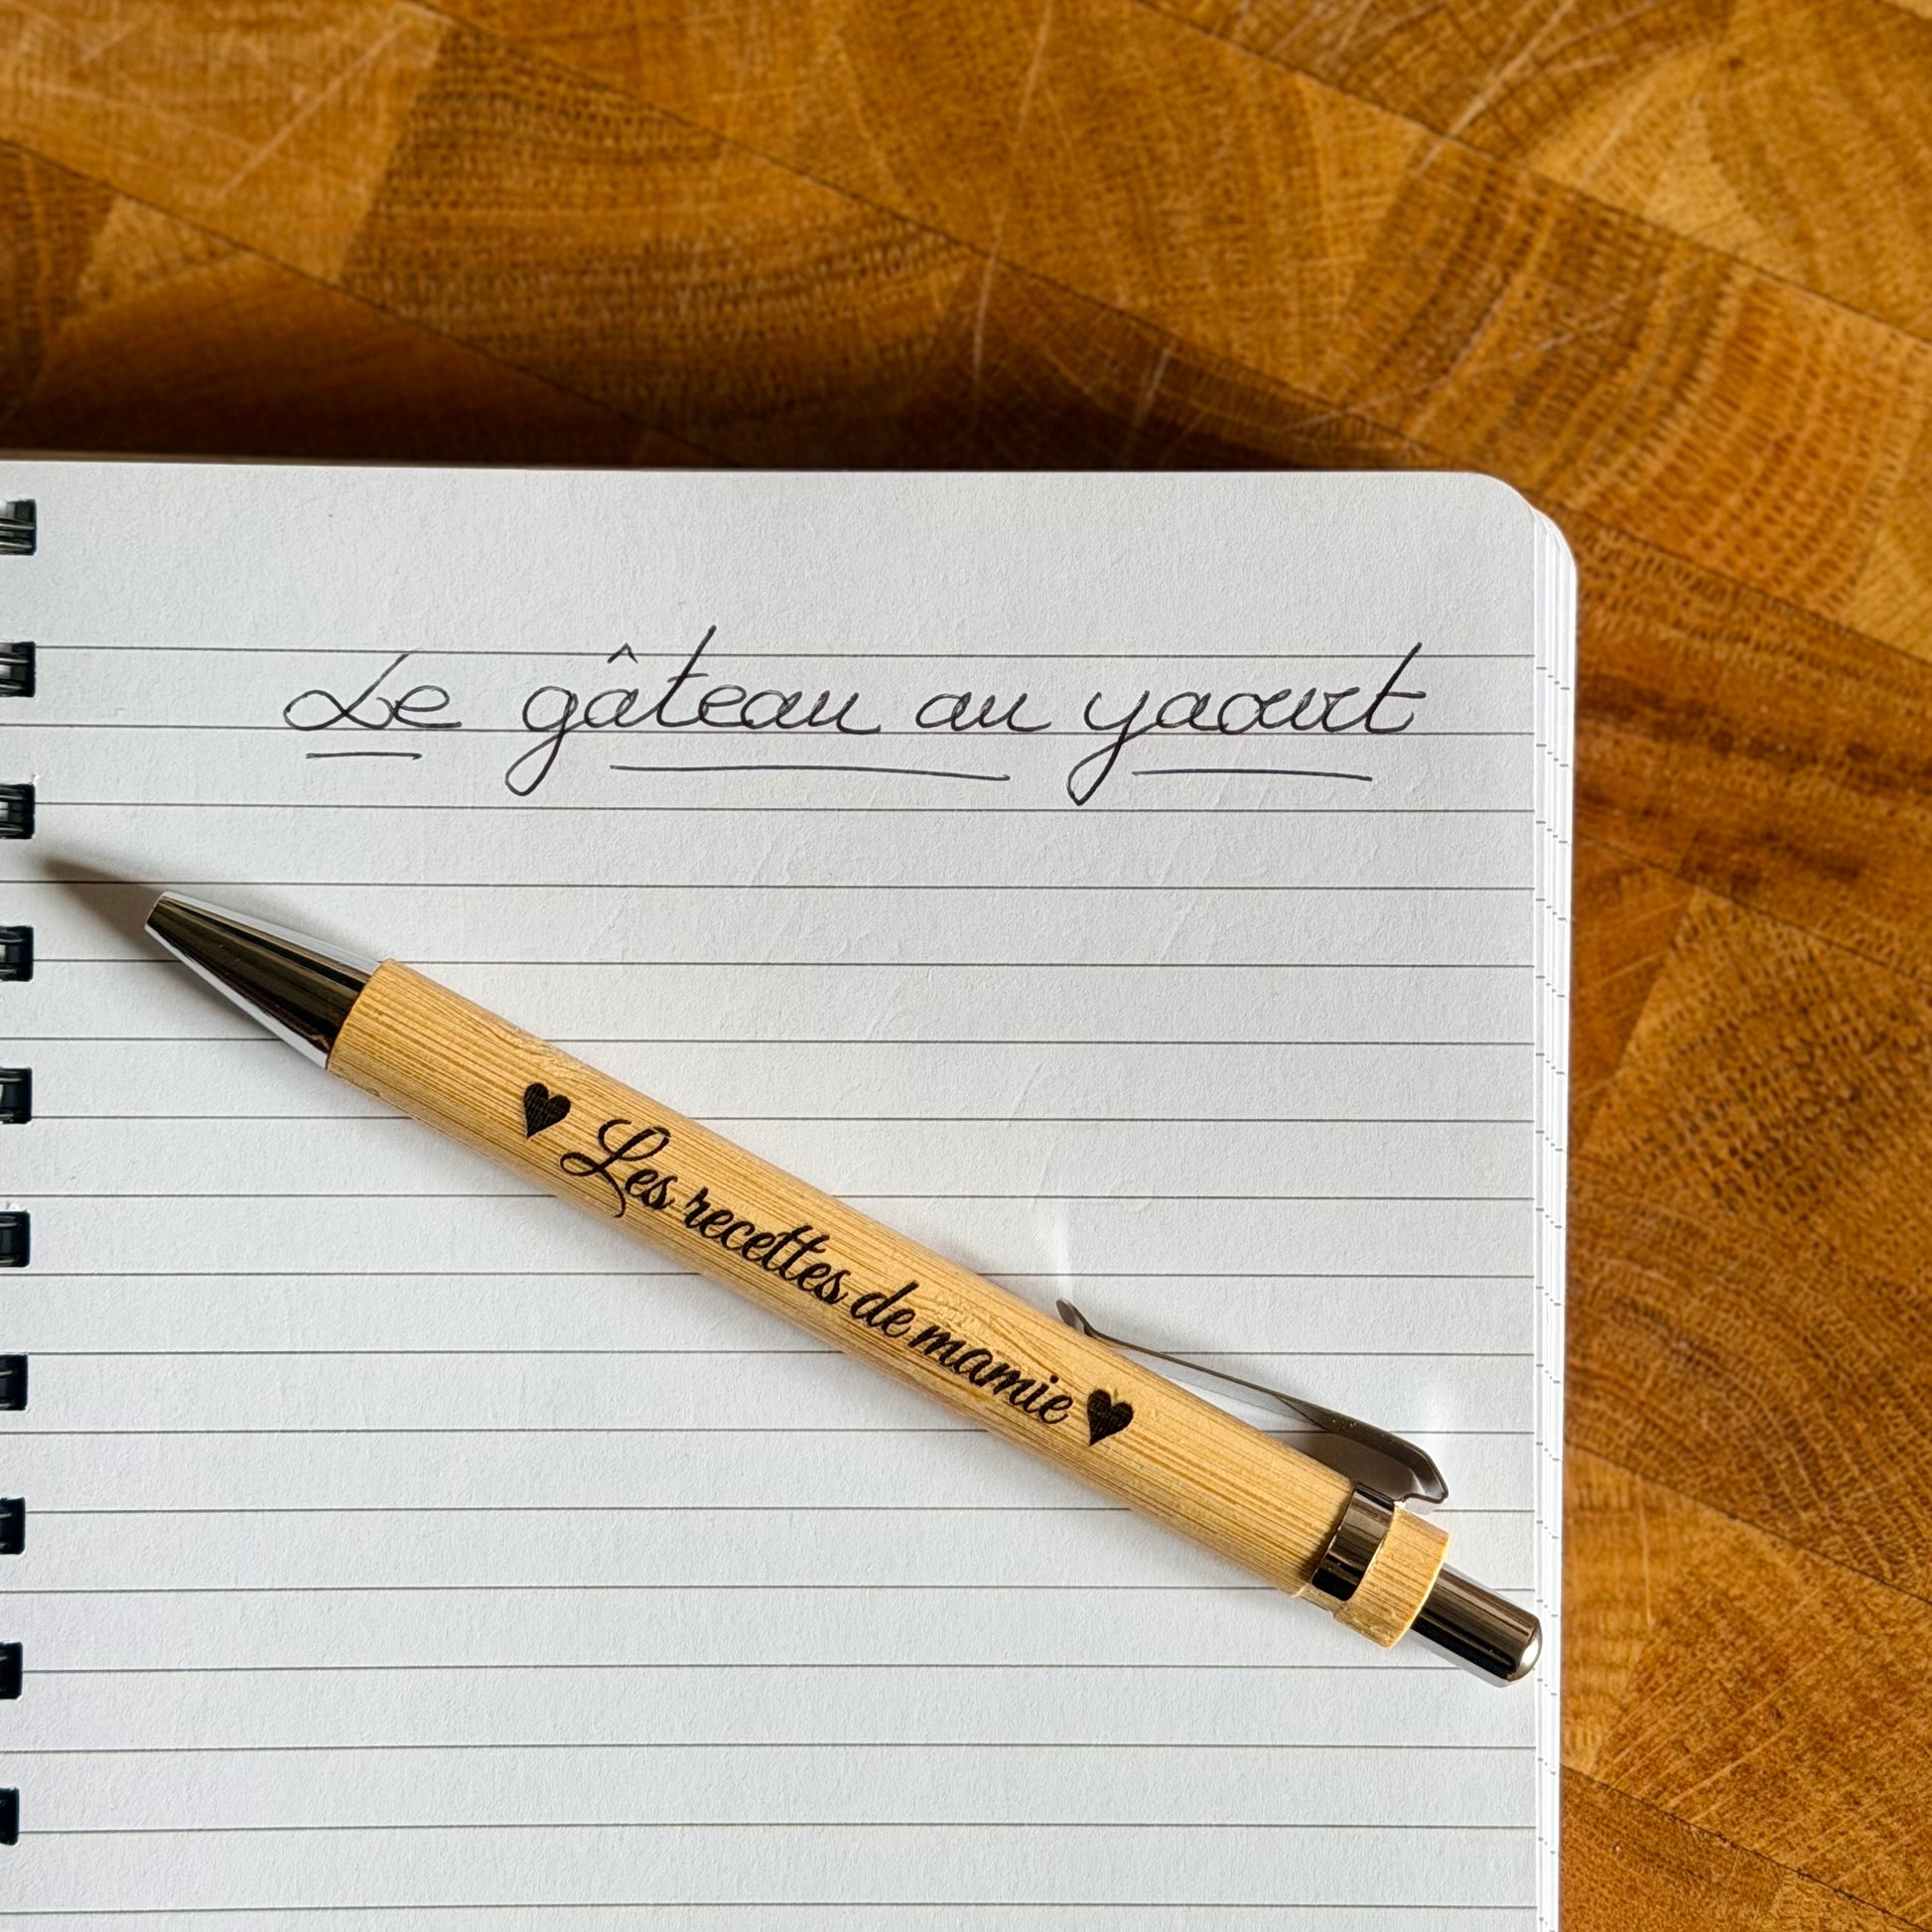 Le gâteau au yaourt
♥ Les recettes de mamie ♥